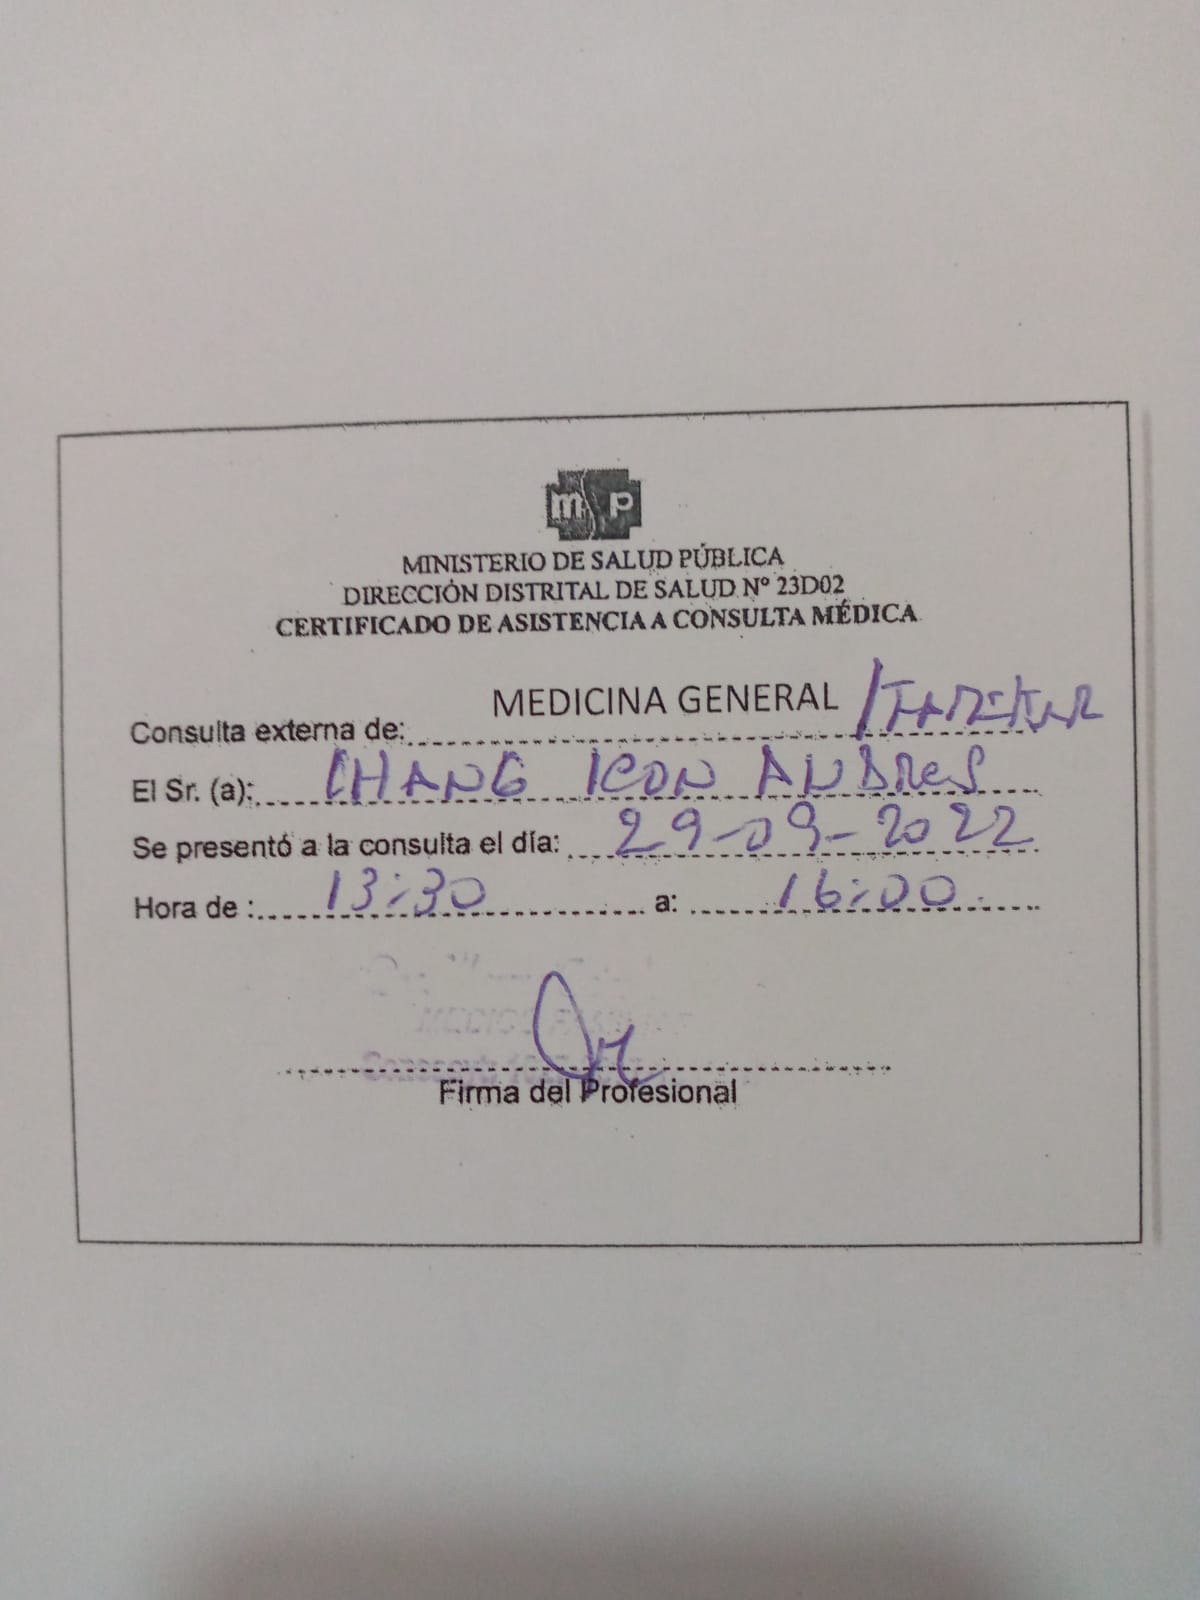 m p
MINISTERIO DE SALUD PÚBLICA
DIRECCIÓN DISTRITAL DE SALUD Nº 23D02
CERTIFICADO DE ASISTENCIA A CONSULTA MÉDICA
Consulta externa de: MEDICINA GENERAL
El Sr. (a): CHANG ICON ANDRES
Se presentó a la consulta el día: 29-09-2022
Hora de : 13:30 a: 16:00
MEDICO
Firma del Profesional